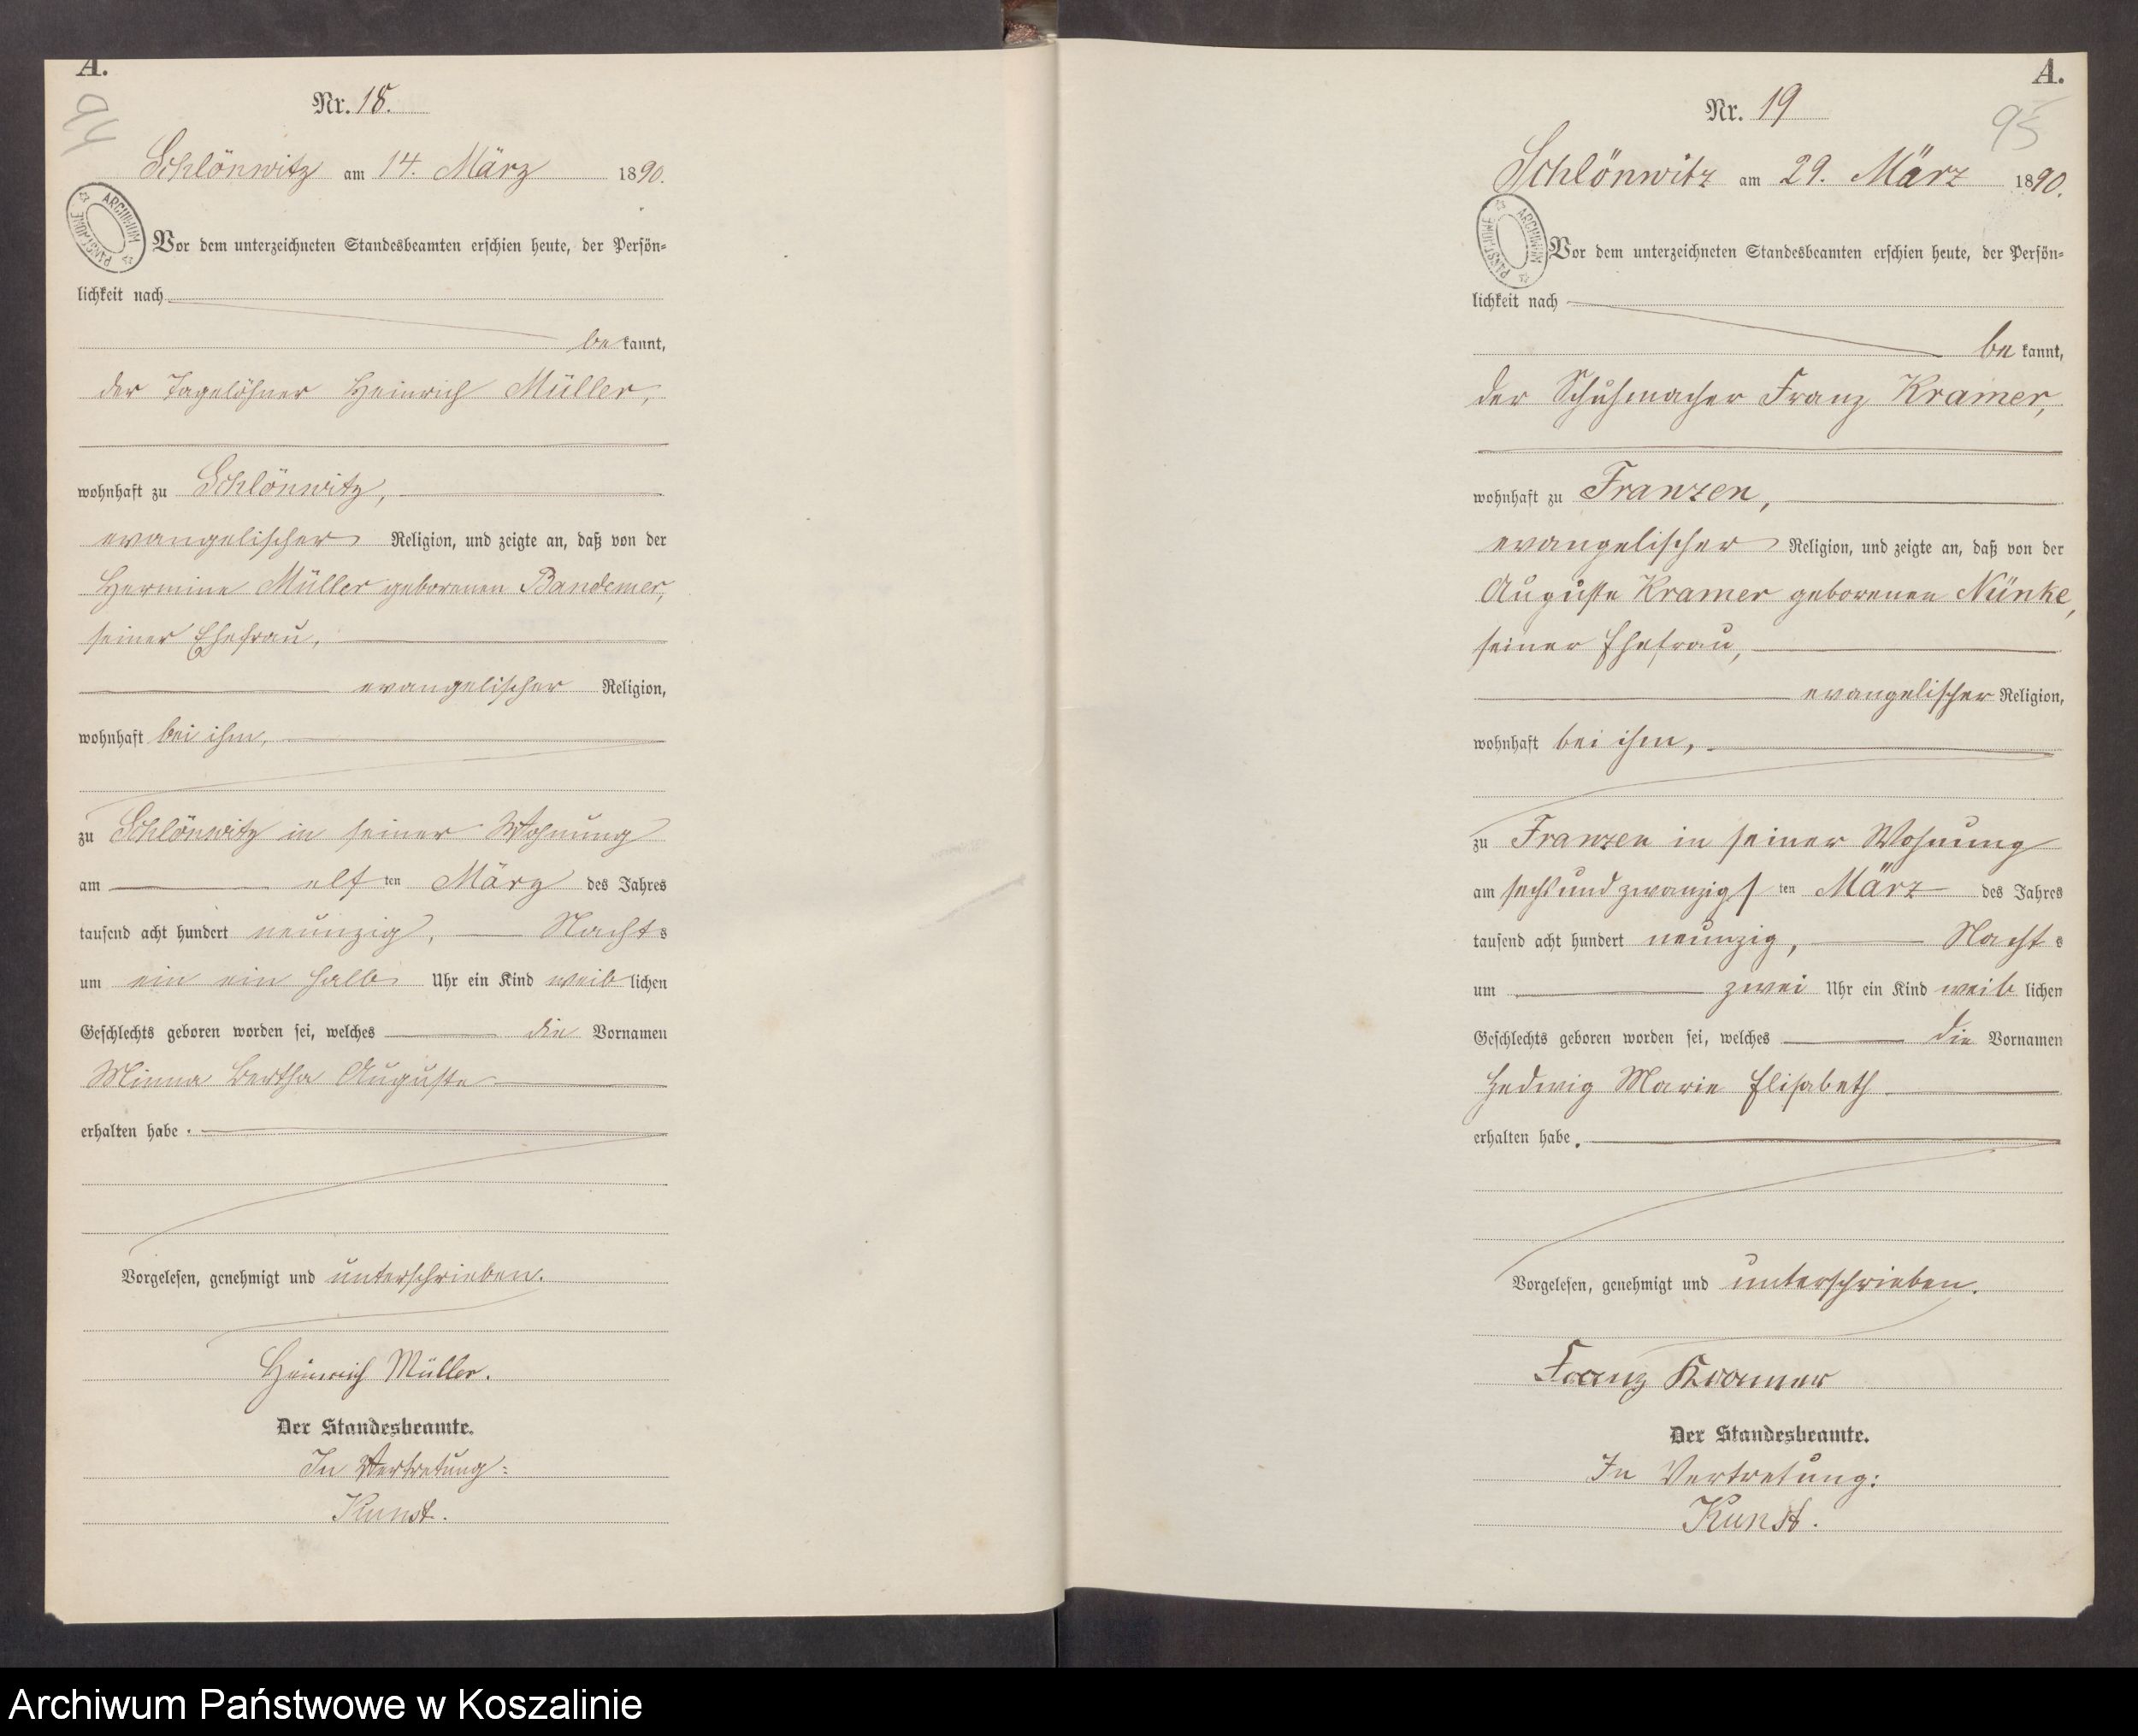 A.
94
Nr. 18.
Schlönwitz am 14. März 1890.
ARCHIWUM PAŃSTWOWE
Vor dem unterzeichneten Standesbeamten erschien heute, der Persön-
lichkeit nach
bekannt,
der Tagelöhner Heinrich Müller,
wohnhaft zu Schlönwitz,
evangelischer Religion, und zeigte an, daß von der
Hermine Müller geborenen Bandemer,
seiner Ehefrau,
evangelischer Religion,
wohnhaft bei ihm,
zu Schlönwitz in seiner Wohnung
am elften März des Jahres
tausend acht hundert neunzig, Nachts
um ein ein halb Uhr ein Kind weiblichen
Geschlechts geboren worden sei, welches die Vornamen
Minna Bertha Auguste
erhalten habe.
Vorgelesen, genehmigt und unterschrieben.
Heinrich Müller.
Der Standesbeamte.
In Vertretung:
Kunst.
A.
95
Nr. 19
Schlönwitz am 29. März 1890.
ARCHIWUM PAŃSTWOWE
Vor dem unterzeichneten Standesbeamten erschien heute, der Persön-
lichkeit nach
bekannt,
der Schuhmacher Franz Kramer,
wohnhaft zu Franzen,
evangelischer Religion, und zeigte an, daß von der
Auguste Kramer geborenen Nünke,
seiner Ehefrau,
evangelischer Religion,
wohnhaft bei ihm,
zu Franzen in seiner Wohnung
am sechsundzwanzigsten März des Jahres
tausend acht hundert neunzig, Nachts
um zwei Uhr ein Kind weiblichen
Geschlechts geboren worden sei, welches die Vornamen
Hedwig Marie Elisabeth
erhalten habe.
Vorgelesen, genehmigt und unterschrieben.
Franz Kramer
Der Standesbeamte.
In Vertretung:
Kunst.
Archiwum Państwowe w Koszalinie